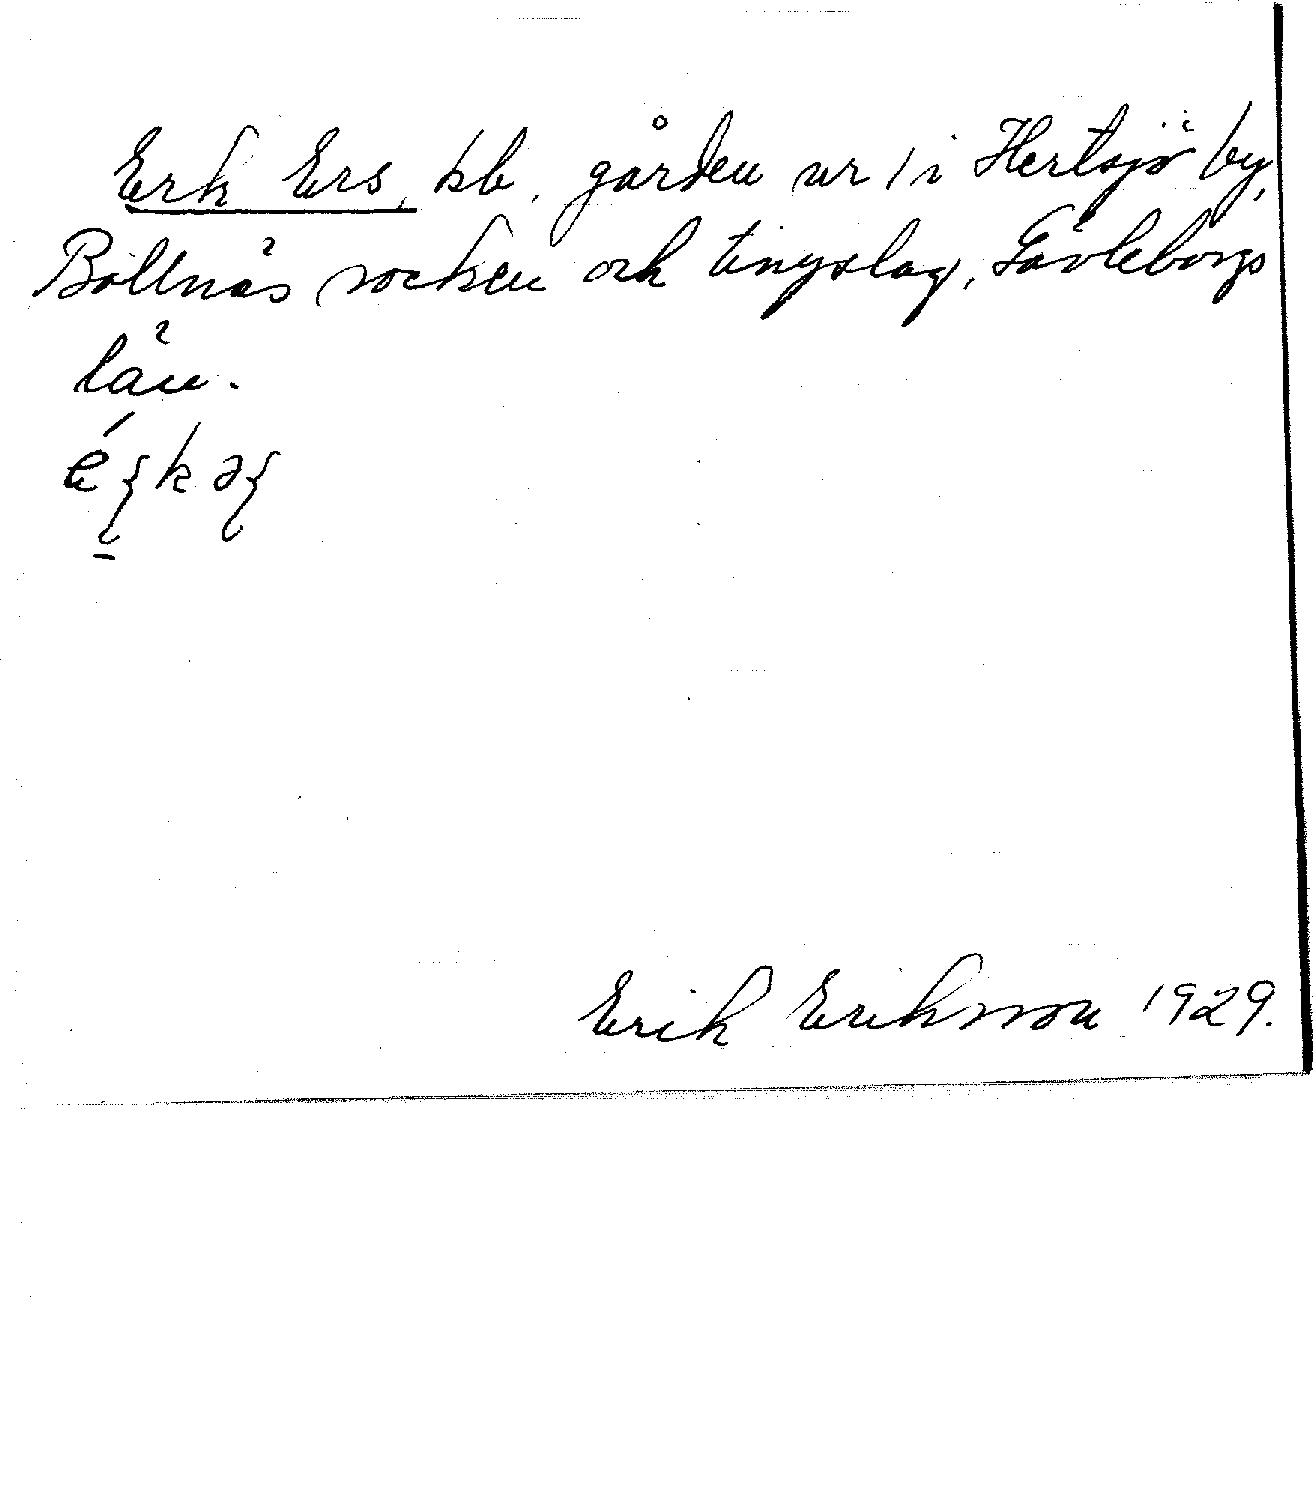 Erk Ers, kb. gården nr 1 i Hertsjö by,
Bollnäs socken och tingslag, Gävleborgs
län.
Erik Eriksson 1929.